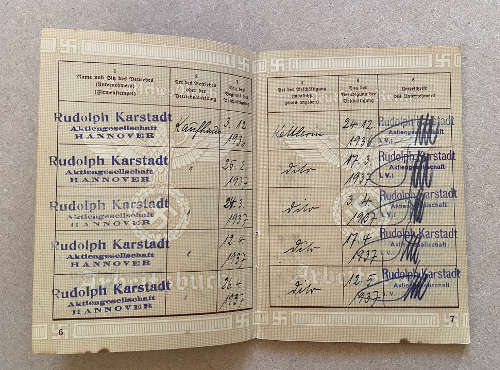 1
Name und Sitz des Betriebes
(Unternehmers)
(Firmenstempel)
2
Art des Betriebes
oder der
Betriebsabteilung
3
Tag des
Beginns der
Beschäftigung
Rudolph Karstadt
Aktiengesellschaft
HANNOVER
Kaufhaus
3. 12.
1936
Rudolph Karstadt
Aktiengesellschaft
HANNOVER
"
1937
Rudolph Karstadt
Aktiengesellschaft
HANNOVER
"
1937
Rudolph Karstadt
Aktiengesellschaft
HANNOVER
"
12. 4.
1937
Rudolph Karstadt
Aktiengesellschaft
HANNOVER
"
26. 4.
1937
6
4
Art der Beschäftigung
(möglichst
genau angeben)
5
Tag der
Beendigung der
Beschäftigung
6
Unterschrift
des Unternehmers
Kellnerin
24. 12.
1936
Rudolph Karstadt
Aktiengesellschaft
dito
17. 3.
1937
Rudolph Karstadt
Aktiengesellschaft
dito
3. 4.
1937
Rudolph Karstadt
Aktiengesellschaft
dito
17. 4.
1937
Rudolph Karstadt
Aktiengesellschaft
dito
12. 5.
1937
Rudolph Karstadt
Aktiengesellschaft
7